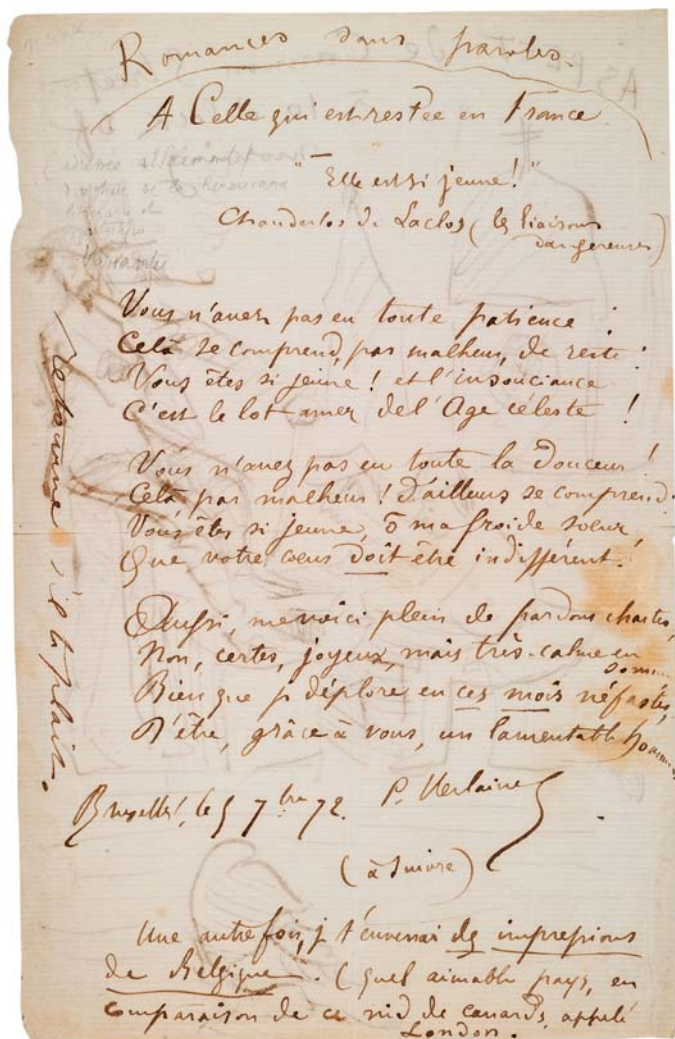 Romances sans paroles.
A Celle qui est restée en France
"— Elle est si jeune!"
Chanderlos de Laclos (les liaisons
dangereuses)
Vous n'avez pas eu toute patience :
Celà se comprend, par malheur, de reste
Vous êtes si jeune ! et l'insouciance
C'est le lot amer de l'Age céleste !
Vous n'avez pas eu toute la douceur !
Celà par malheur ! d'ailleurs se comprend.
Vous êtes si jeune, ô ma froide soeur,
Que votre coeur doit être indifférent !
Aussi, me voici plein de pardons chastes,
Non, certes, joyeux, mais très-calme en
somme
Bien que je déplore en ces mois néfastes,
D'être, grâce à vous, un lamentable homme
Bruxelles, le 5 7bre 72. P. Verlaine
(à suivre)
Une autre fois, je t'enverrai des impressions
de Belgique. (Quel aimable pays, en
comparaison de ce nid de canards, appelé
London.
Retourne s'il te plait.